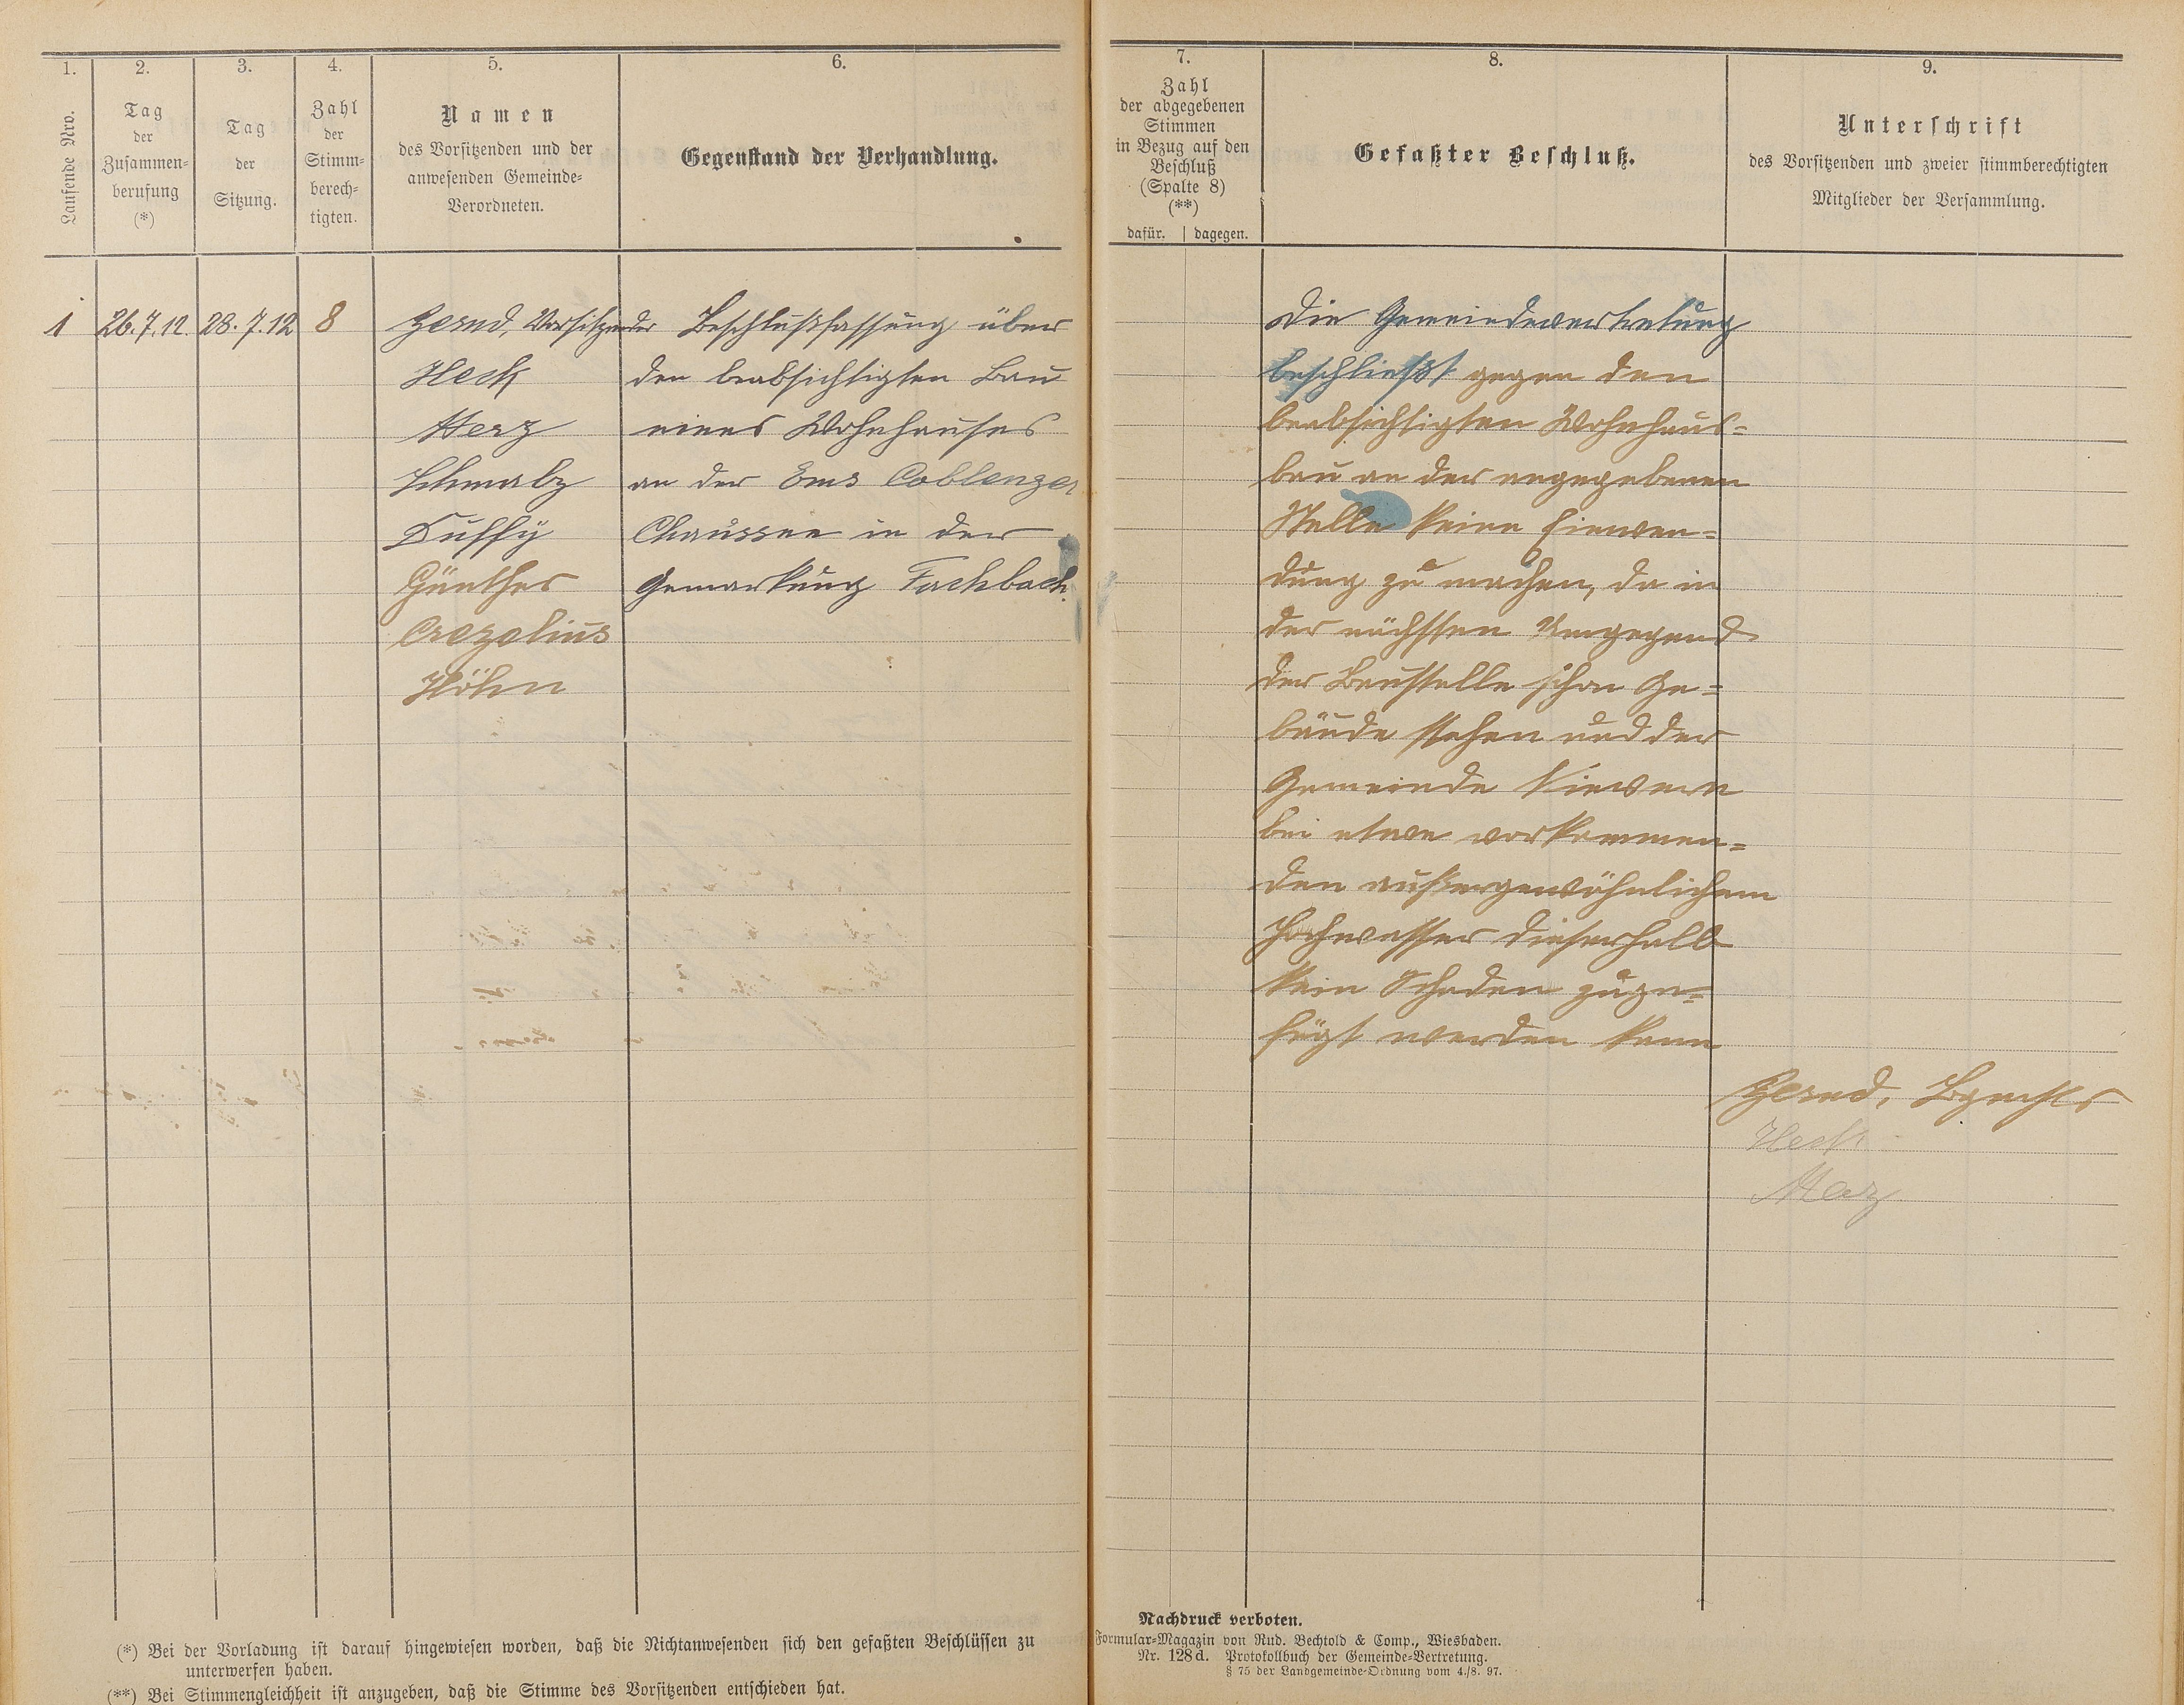 1.
Laufende Nro.
2.
Tag
der
Zusammen=
berufung
(*)
3.
Tag
der
Sitzung.
4.
Zahl
der
Stimm=
berech=
tigten.
5.
Namen
des Vorsitzenden und der
anwesenden Gemeinde=
Verordneten.
6.
Gegenstand der Verhandlung.
7.
Zahl
der abgegebenen
Stimmen
in Bezug auf den
Beschluß
(Spalte 8)
(**)
dafür. | dagegen.
8.
Gefaßter Beschluß.
9.
Unterschrift
des Vorsitzenden und zweier stimmberechtigten
Mitglieder der Versammlung.
1
26.7.12.
28.7.12
8
Gernd, Vorsitzender
Heck
Herz
Schmalz
Duffy
Günther
Crezelius
Höhn
Beschlußfassung über
den beabsichtigten Bau
eines Wohnhauses
an der Ems Coblenzer
Chaussee in der
Gemarkung Fachbach.
Die Gemeindevertretung
beschließt gegen den
beabsichtigten Wohnhaus=
bau an der angegebenen
Stelle keine Einwen=
dung zu machen, da in
der nächsten Umgegend
der Baustelle schon Ge=
bäude stehen und der
Gemeinde Nievern
bei etwa vorkommen=
den außergewöhnlichem
Hochwasser dieserhalb
kein Schaden zuge=
fügt werden kann
Gernd,
Heck
Herz
(*) Bei der Vorladung ist darauf hingewiesen worden, daß die Nichtanwesenden sich den gefaßten Beschlüssen zu
unterwerfen haben.
(**) Bei Stimmengleichheit ist anzugeben, daß die Stimme des Vorsitzenden entschieden hat.
Nachdruck verboten.
Formular=Magazin von Rud. Bechtold & Comp., Wiesbaden.
Nr. 128d. Protokollbuch der Gemeinde=Vertretung.
§ 75 der Landgemeinde=Ordnung vom 4./8. 97.